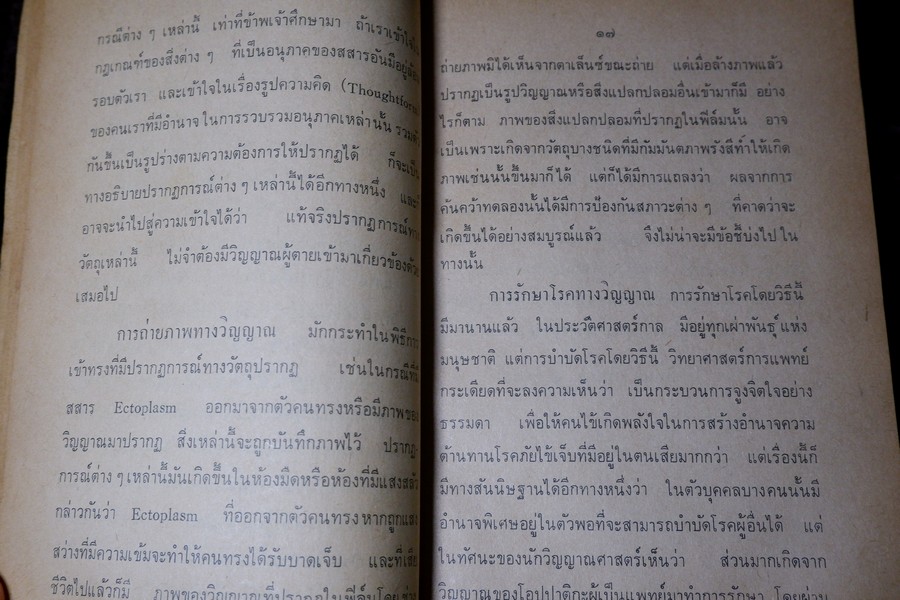 กรณีต่าง ๆ เหล่านี้ เท่าที่ข้าพเจ้าศึกษามา ถ้าเราเข้าใจ
กฎเกณฑ์ของสิ่งต่าง ๆ ที่เป็นอนุภาคของสสารอันมีอยู่
รอบตัวเรา และเข้าใจในเรื่องรูปความคิด (Thoughtform
ของคนเราที่มีอำนาจ ในการรวบรวมอนุภาคเหล่านั้น รวม
กันขึ้นเป็นรูปร่างตามความต้องการให้ปรากฏได้ ก็จะเป็น
ทางอธิบายปรากฏการณ์ต่าง ๆ เหล่านี้ได้อีกทางหนึ่ง และ
อาจจะนำไปสู่ความเข้าใจได้ว่า แท้จริงปรากฏการณ์ทาง
วัตถุเหล่านี้ ไม่จำต้องมีวิญญาณผู้ตายเข้ามาเกี่ยวข้องด้วย
เสมอไป
การถ่ายภาพทางวิญญาณ มักกระทำในพิธีการ
เข้าทรงที่มีปรากฏการณ์ทางวัตถุปรากฏ เช่นในกรณีที่มี
สสาร Ectoplasm ออกมาจากตัวคนทรงหรือมีภาพของ
วิญญาณมาปรากฏ สิ่งเหล่านี้จะถูกบันทึกภาพไว้ ปรากฏ-
การณ์ต่าง ๆ เหล่านี้มันเกิดขึ้นในห้องมืดหรือห้องที่มีแสงสลัว
กล่าวกันว่า Ectoplasm ที่ออกจากตัวคนทรง หากถูกแสง
สว่างที่มีความเข้มจะทำให้คนทรงได้รับบาดเจ็บ และที่เสีย
ชีวิตไปแล้วก็มี ภาพของวิญญาณที่ปรากฏในฟิล์มโดย
๑๗
ถ่ายภาพมิได้เห็นจากตาเล็นซ์ขณะถ่าย แต่เมื่อล้างภาพแล้ว
ปรากฏเป็นรูปวิญญาณหรือสิ่งแปลกปลอมอื่นเข้ามาก็มี อย่าง
ไรก็ตาม ภาพของสิ่งแปลกปลอมที่ปรากฏในฟิล์มนั้น อาจ
เป็นเพราะเกิดจากวัตถุบางชนิดที่มีกัมมันตภาพรังสีทำให้เกิด
ภาพเช่นนั้นขึ้นมาก็ได้ แต่ก็ได้มีการแถลงว่า ผลจากการ
ค้นคว้าทดลองนั้นได้มีการป้องกันสภาวะต่าง ๆ ที่คาดว่าจะ
เกิดขึ้นได้อย่างสมบูรณ์แล้ว จึงไม่น่าจะมีข้อชี้บ่งไป ใน
ทางนั้น
การรักษาโรคทางวิญญาณ การรักษาโรคโดยวิธีนี้
มีมานานแล้ว ในประวัติศาสตร์กาล มีอยู่ทุกเผ่าพันธุ์ แห่ง
มนุษชาติ แต่การบำบัดโรคโดยวิธีนี้ วิทยาศาสตร์การแพทย์
กระเดียดที่จะลงความเห็นว่า เป็นกระบวนการจูงจิตใจอย่าง
ธรรมดา เพื่อให้คนไข้เกิดพลังใจในการสร้างอำนาจความ
ต้านทานโรคภัยไข้เจ็บที่มีอยู่ในตนเสียมากกว่า แต่เรื่องนี้ก็
มีทางสันนิษฐานได้อีกทางหนึ่งว่า ในตัวบุคคลบางคนนั้นมี
อำนาจพิเศษอยู่ในตัวพอที่จะสามารถบำบัดโรคผู้อื่นได้ แต่
ในทัศนะของนักวิญญาณศาสตร์เห็นว่า ส่วนมากเกิดจาก
วิญญาณของโอปปาติกะผู้เป็นแพทย์มาทำการรักษา โดยผ่าน